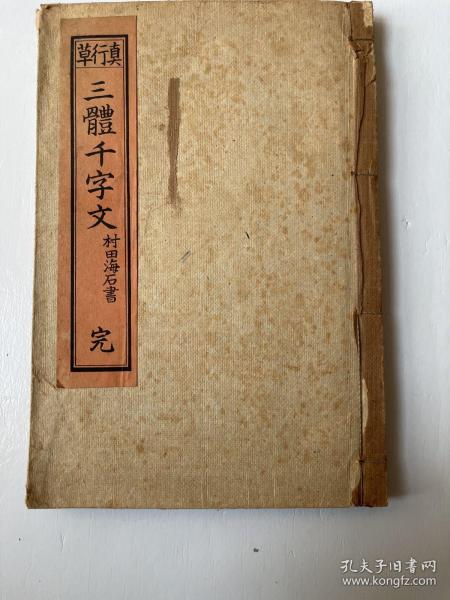 真行草
三體千字文
村田海石書
完
孔夫子旧书网
www.kongfz.com